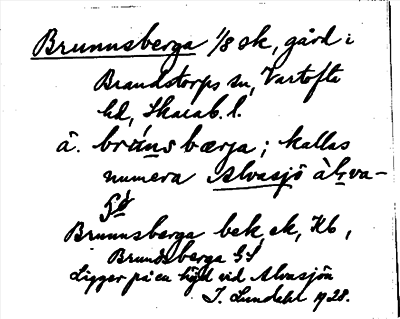 Brunnsberga 1/8 sk, gård i
Brandstorps sn, Vartofta
hd, Skarab. l.
å. brúnsbærja; kallas
numera Alvasjö àlva-
Brunnsberga bek, ek, Kb,
Brundsberga GS
Ligger på en höjd vid Alvasjön
J. Lundahl 1928.